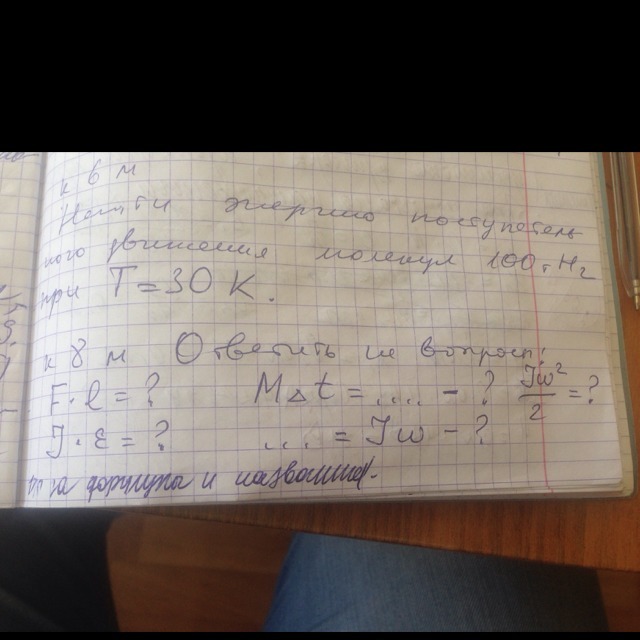 к 6 м
Найти энергию поступатель
ного движения молекул 100 г H₂
при T = 30 К.
к 8 м Ответить на вопросы:
F·l = ? MΔt = .... - ? Jω²/2 = ?
J·ε = ? .... = Jω - ?
на формулы и названия.